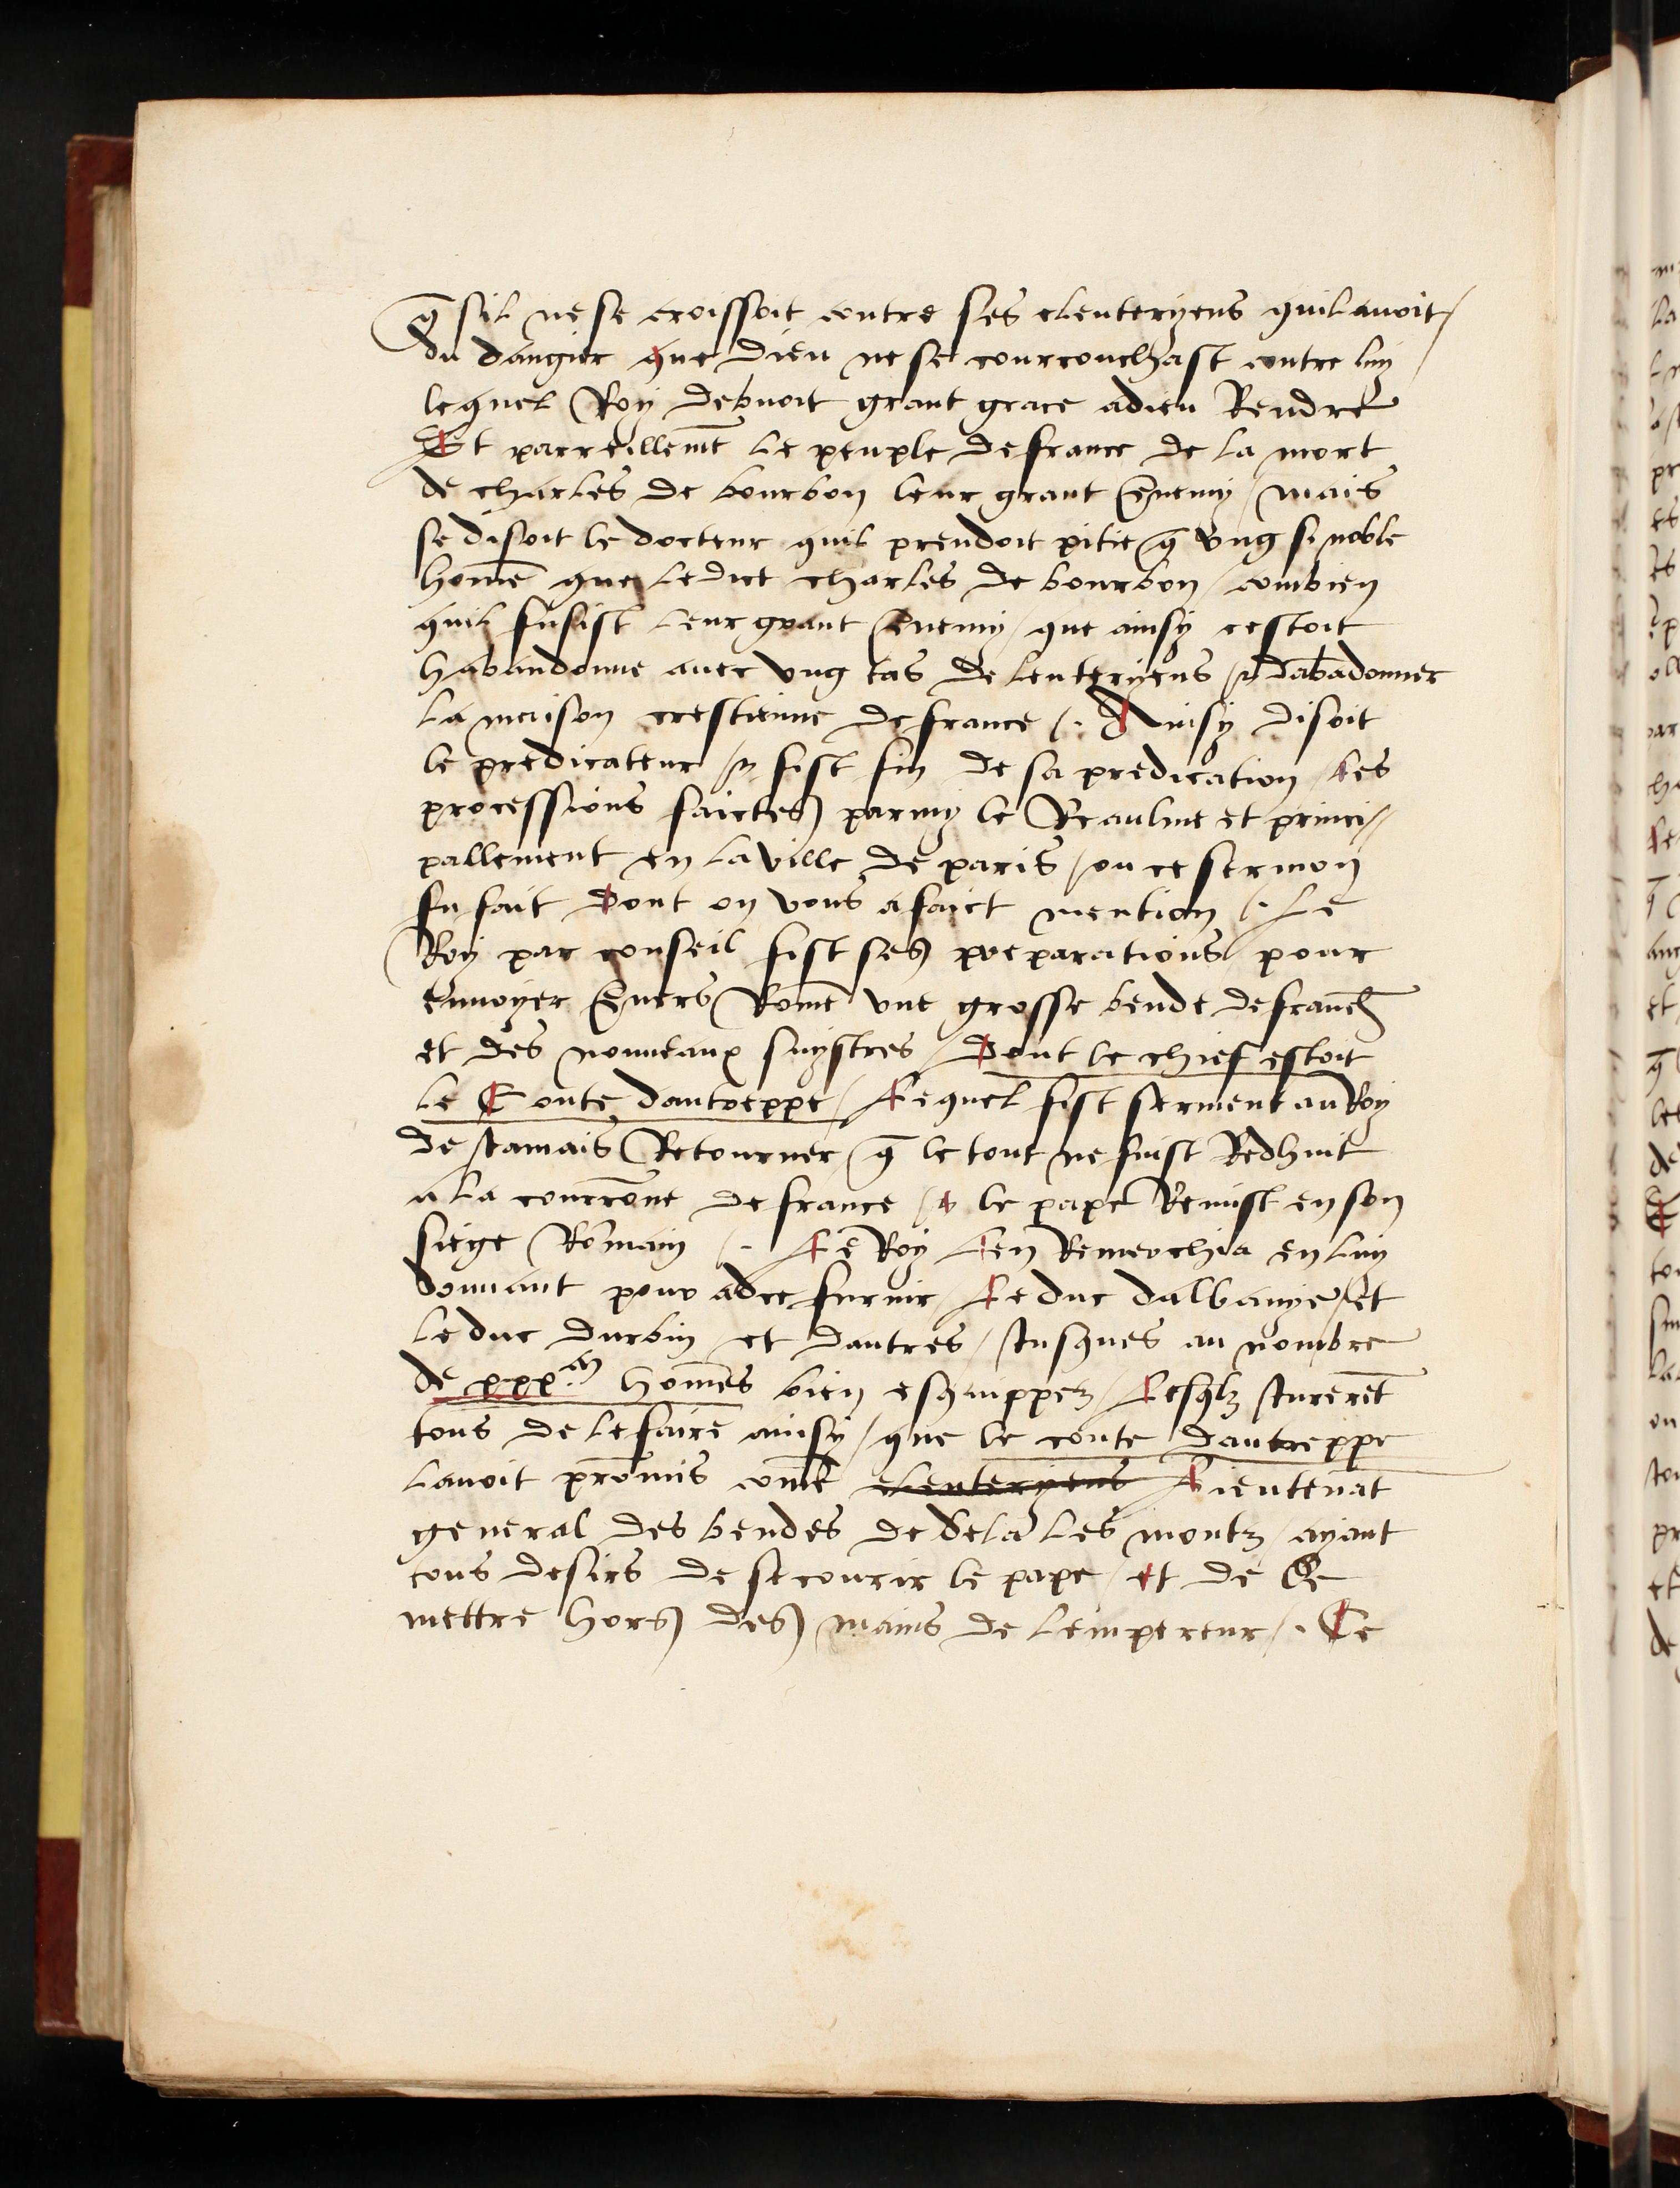 q̄ sil ne se croissoit contre ses elenteryens quil avoit /
du dangier que dieu ne se courrouchast contre luy /
lequel Roy debvoit grant grace a dieu Rendre
Et parreillemēt le peuple de france de la mort
de charles de bourbon leur grant Enemy / mais
se disoit le docteur quil prendoit pitie q̄ ung si noble
home que ledict charles de bourbon / combien
quil fusist leur grant Enemy / que ainsy cestoit
habandonne avec ung tas de lenteryens / et dabādonner
la maison crestienne de france /. Ainsy disoit
le predicateur / et fist fin de sa predication / Les
processions faictes parmy le Reaulme et princi //
pallement en la ville de paris / ou ce sermon
fu fait Dont on vous a faict mention /. Le
Roy par conseil fist ses preparations pour
envoyer Envers Rome une grosse bende de francħ
et des nouveaux suystres / Dont le chief estoit
le Conte dautreppe / Lequel fist serment au Roy
de Jamais Retourner q̄ le tout ne fuist Redhuit
a la courrōne de france / et le pape Remist en son
siege Romain /. Le Roy Len Remerchia en luy
donnant pour adce furnir / Le duc dalbanye / et
le duc durbin / et dautres / Jusques au nombre
de xxx.m homēs bien esquippez / Lesqlz Jurerēt
tous de le faire ainsy / que le conte dautreppe
lavoit promis comē elenteryens Lieutenāt
general des bendes de dela les montz / ayant
tous desirs de secourir le pape / et de Le
mettre hors des mains de lempereur /. Ce